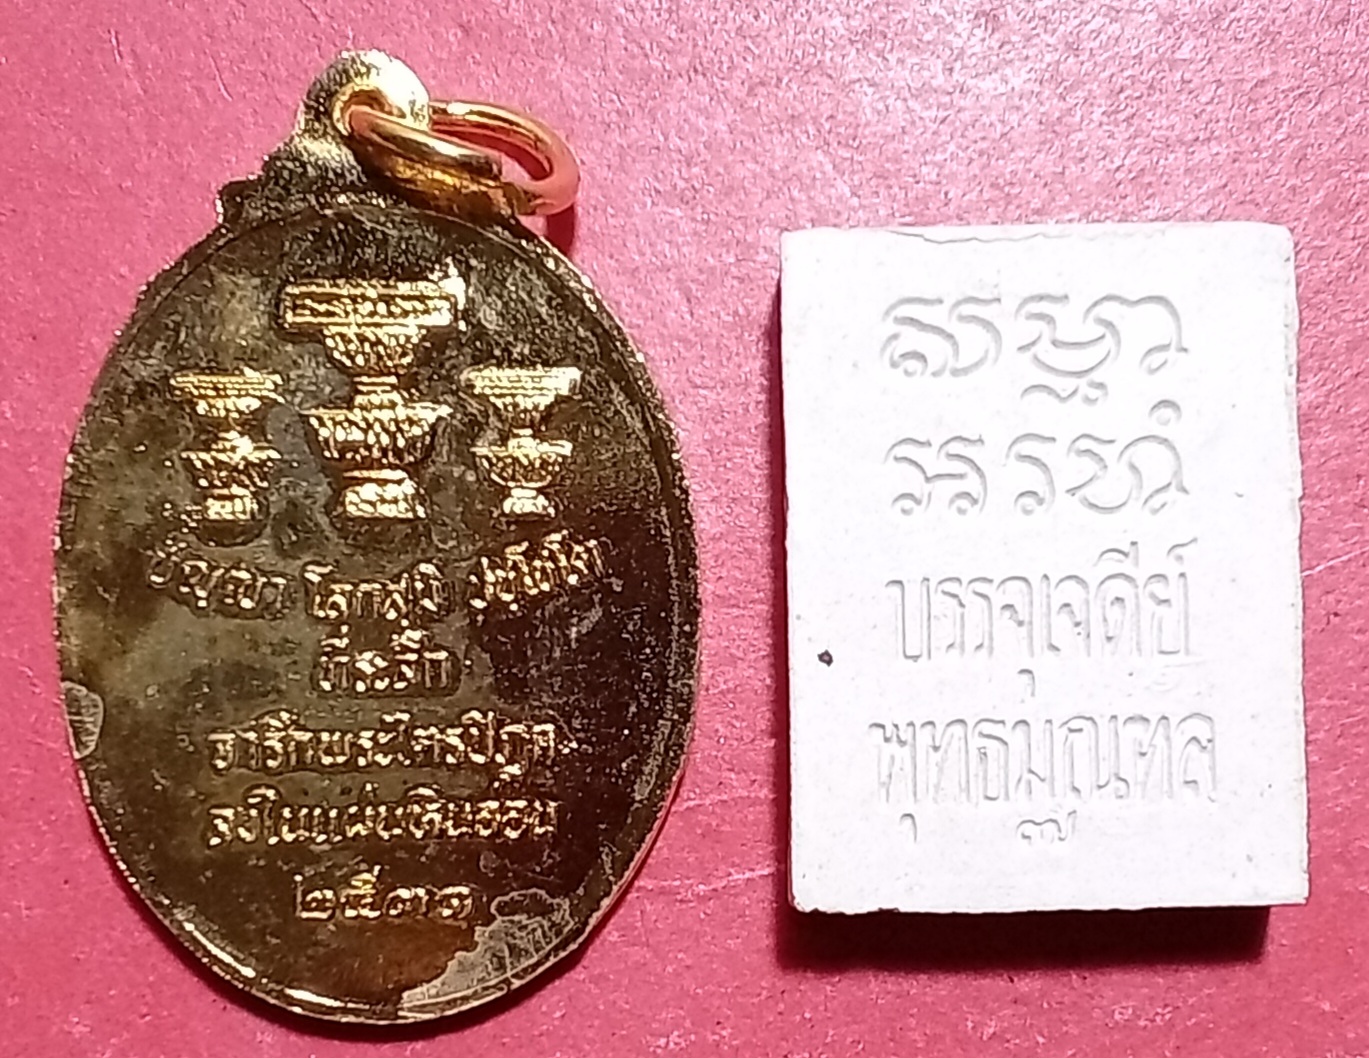 ปัญญา โลกสฺมิ ปชฺโชโต
ที่ระลึก
จารึกพระไตรปิฎก
ลงในแผ่นหินอ่อน
๒๕๓๑
สมฺมา
อรหํ
บรรจุเจดีย์
พุทธมณฑล
๓